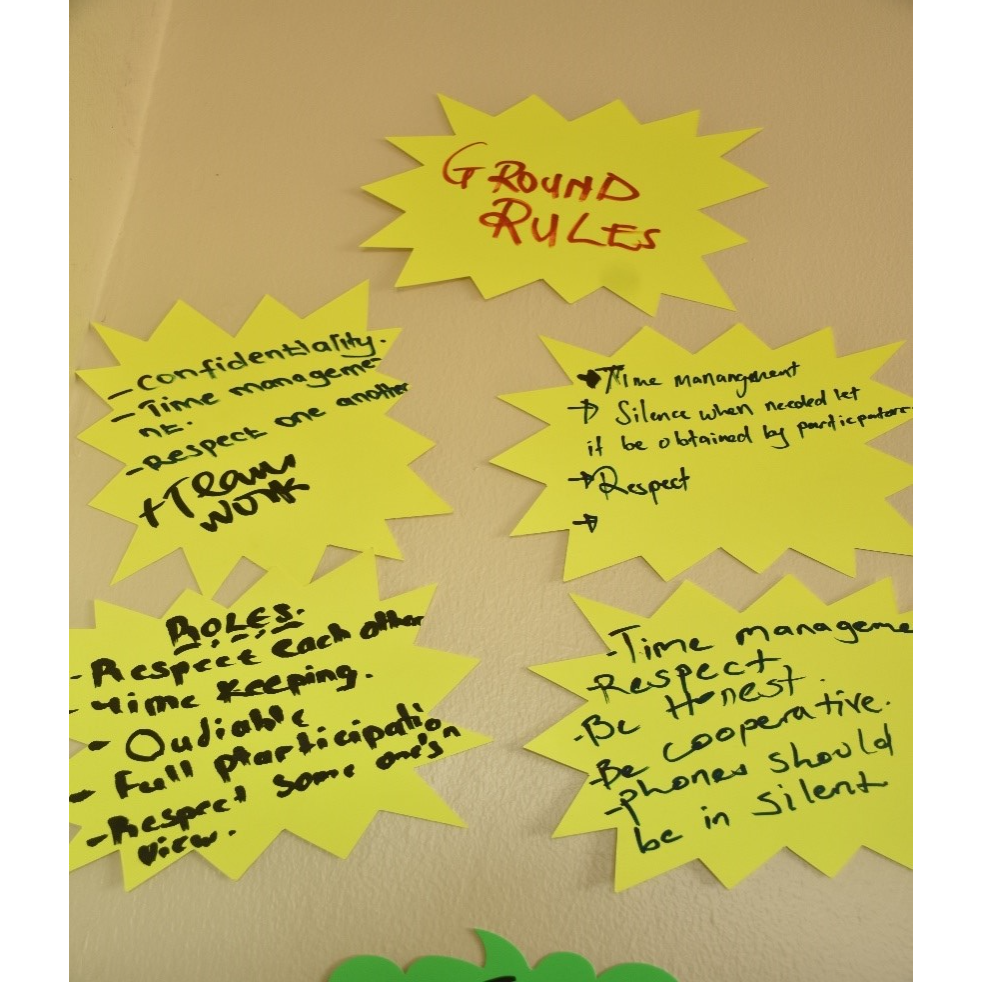 GROUND
RULES
- Confidentiality.
- Time manageme
nt.
- Respect one another
+ Team
work
→ Time manangment
→ Silence when needed let
it be obtained by
→ Respect
→
ROLES.
- Respect Each other
- time keeping.
- Oudiable
- Full participation
- Respect some one's
view.
- Time manageme
- Respect
- Be Honest.
- Be cooperative.
- phones should
be in silent